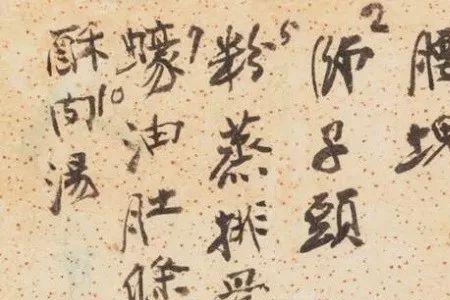 腰塊
師子頭 2
粉蒸排骨 5
蠔油肚條 7
酥肉湯 10